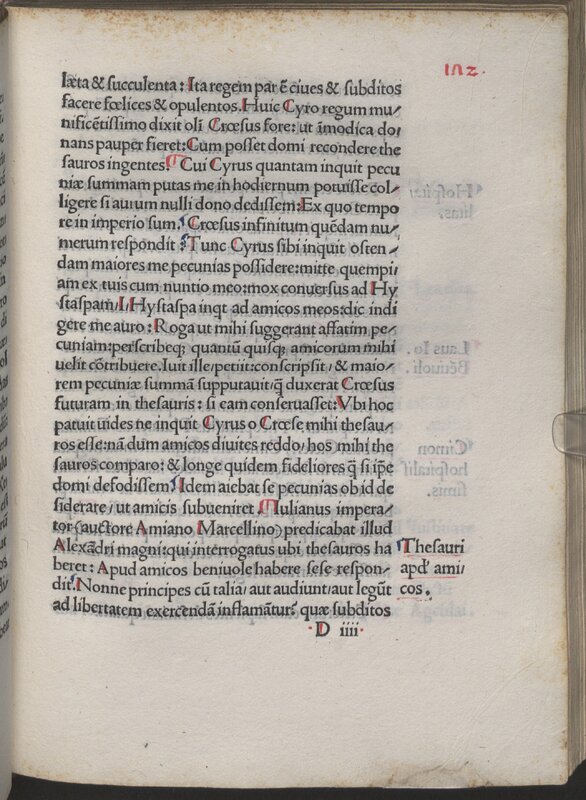 102.
læta & succulenta: Ita regem par ē ciues & subditos
facere fœlices & opulentos. Huic Cyro regum mu/
nificētissimo dixit oli Crœsus fore: ut īmodica do/
nans pauper fieret: Cum posset domi recondere the
sauros ingentes. ¶ Cui Cyrus quantam inquit pecu
niæ summam putas me in hodiernum potuisse col/
ligere si aurum nulli dono dedissem: Ex quo tempo
re in imperio sum. Crœsus infinitum quēdam nu/
merum respondit: Tunc Cyrus sibi inquit osten/
dam maiores me pecunias possidere: mitte quempi/
am ex tuis cum nuntio meo: mox conuersus ad Hy
staspam/ I/ Hystaspa inqt ad amicos meos: dic indi
gere me auro: Roga ut mihi suggerant affatim pe/
cuniam: perscribeq; quantū quisq; amicorum mihi
uelit cōtribuere. Iuit ille/ petiit: conscripsit/ & maio/
rem pecuniæ summā supputauit/ q̄ duxerat Crœsus
futuram in thesauris: si eam conseruasset: Vbi hoc
patuit uides ne inquit Cyrus o Crœse mihi thesau/
ros esse: nā dum amicos diuites reddo/ hos mihi the
sauros comparo: & longe quidem fideliores q̄ si ip̄e
domi defodissem. Idem aiebat se pecunias ob id de
siderare/ ut amicis subueniret. ¶ Iulianus impera/
tor (auctore Amiano Marcellino) predicabat illud
Alexādri magni: qui interrogatus ubi thesauros ha
beret: Apud amicos beniuole habere sese respon/
dit. Nonne principes cū talia/ aut audiunt/ aut legūt
ad libertatem exercendā inflamātur: quæ subditos
Thesauri
apd' ami/
cos.
D iiii